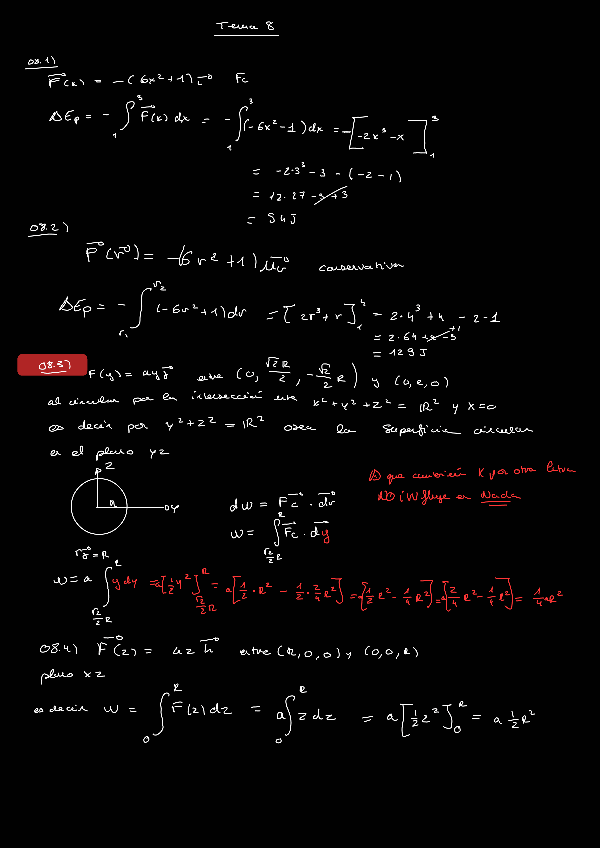 Tema 8
08.1)
F(x) = -(6x²+1) i Fc
ΔEp = - ∫₁³ F(x) dx = - ∫₁³ (-6x²-1) dx = - [-2x³-x]₁³
= -2·3³-3-(-2-1)
= 12·27-3+3
= 54J
08.2)
F(r) = -(6r²+1) ur conservativa
ΔEp = - ∫ᵣ₁ʳ² (-6r²+1) dr = [2r³+r]₁⁴ = 2·4³+4-2-1
= 2·64+4-3
= 129J
08.3)
F(y) = ay j entre (0, √2R/2, -√2/2 R) y (0,R,0)
al circular por la intersección entre x²+y²+z² = R² y x=0
es decir por y²+z² = R² osea la superficie circular
en el plano yz
Z
R
oy
dw = Fc · dr
w = ∫ Fc · dy
que cambien x por otra letra
NO influye en Nada
r = R
w = a ∫ y dy = a[½y²] = a[½·R² - ½·2/4 R²] = a[½R² - ¼R²] = a[2/4 R² - ¼R²] = ¼aR²
08.4) F(z) = az k entre (R,0,0) y (0,0,R)
plano xz
es decir w = ∫₀ᴿ F(z) dz = a ∫₀ᴿ z dz = a[½z²]₀ᴿ = a ½R²